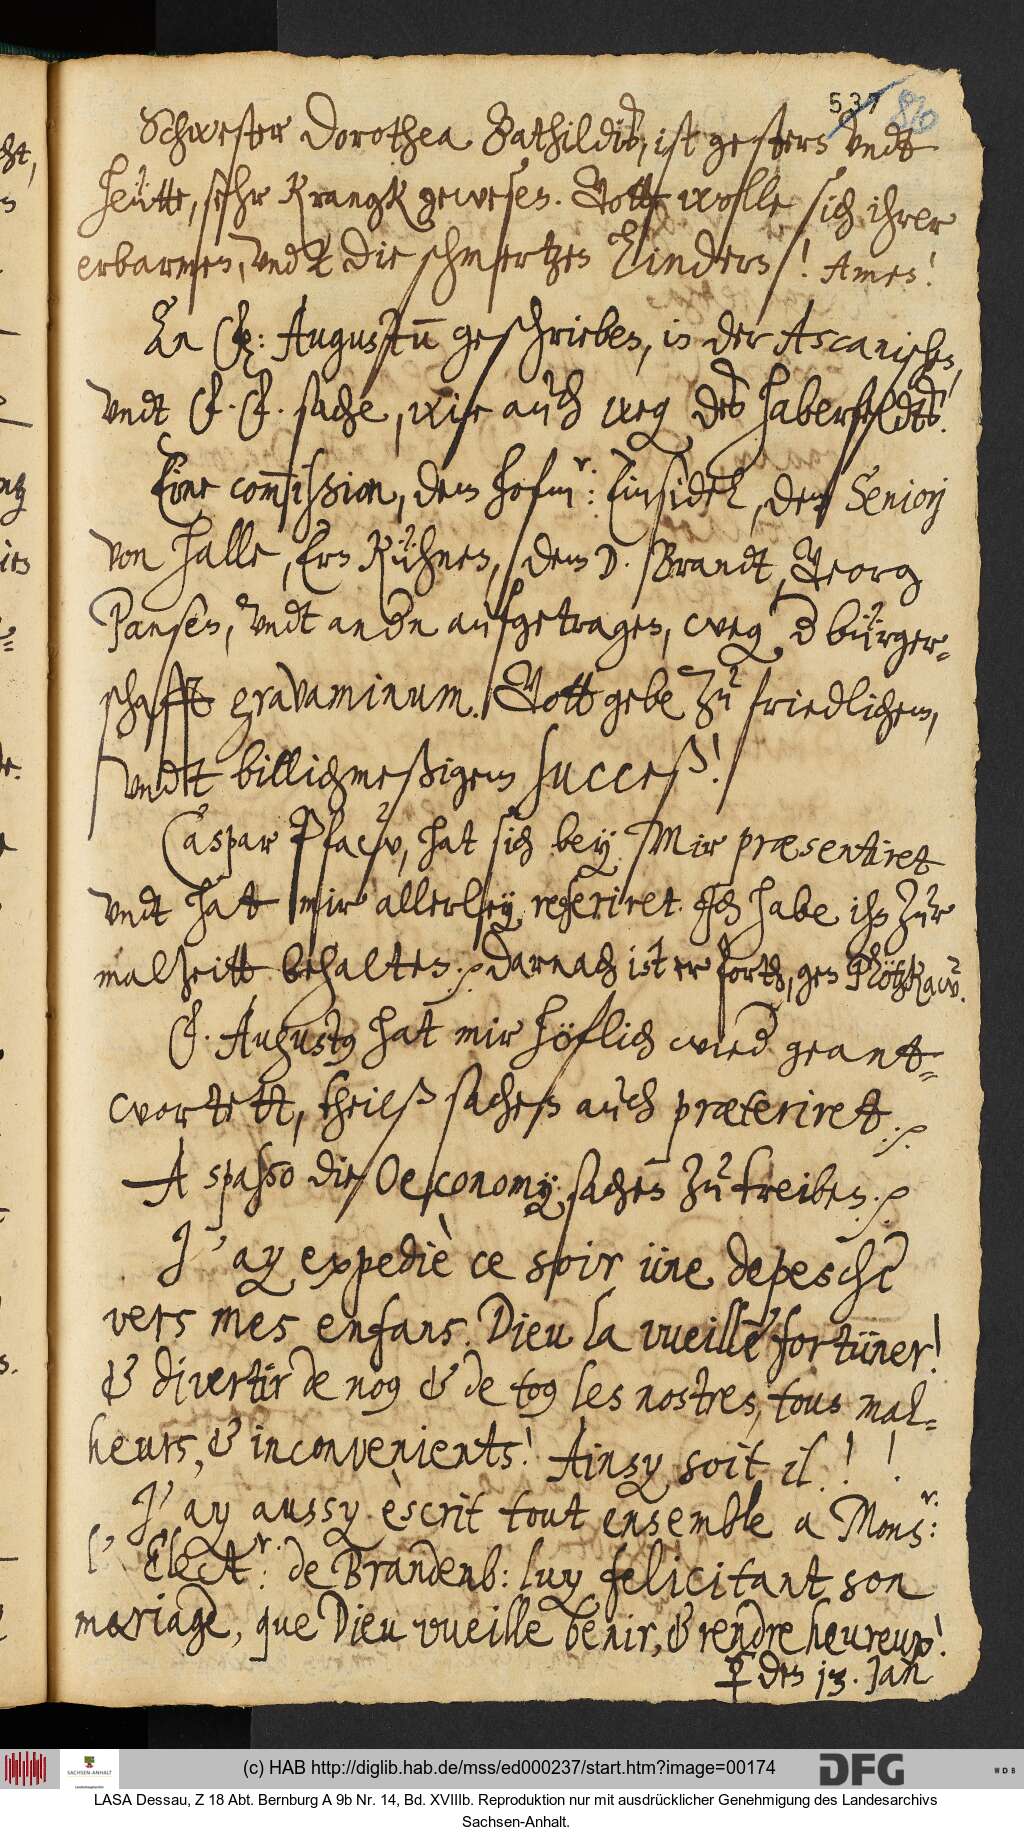 537
Schwester Dorothea Bathildis, ist gestern vndt
heütte, sehr Krangk gewesen. Gott wolle sich ihrer
erbarmen, vndt die schmertzen lindern! Amen!
An Augustum geschrieben, in der Ascanischen,
vndt sache, wie auch weg des haberfeldts!
Eine commission, dem hofmr: Einsidel, dem Seniorj
von halle, Ern Kühnen, dem D. Brandt, Georg
Pansen, vndt andn aufgetragen, weg d bürger-
schafft gravaminum. Gott gebe zu friedlichem,
vndt billichmeßigem succeß!
Caspar Pfaw, hat sich bey Mir præsentiret
vndt hat mir allerley referiret. Ich habe ihn zur
malzeitt behalten. Darnach ist er forth, gen Plötzkaw.
F. Augustus hat mir höflich wied geant-
wortett, theilß sachen auch præteriret.
A spasso die Oeconomy sachen zu treiben.
J'ay expediè ce soir üne depesche
vers mes enfans. Dieu la vueille fortüner!
& divertir de nos & de tos les nostres, tous mal-
heurs, & inconvenients! Ainsy soit il! !
J'ay aussy èscrit tout ensemble a Monsr:
l' Electr: de Brandenb: luy felicitant son
mariage, que Dieu vueille benir, & rendre heureux!
♀ den 13. Jan
(c) HAB http://diglib.hab.de/mss/ed000237/start.htm?image=00174
SACHSEN-ANHALT
DFG
WDB
LASA Dessau, Z 18 Abt. Bernburg A 9b Nr. 14, Bd. XVIIIb. Reproduktion nur mit ausdrücklicher Genehmigung des Landesarchivs
Sachsen-Anhalt.